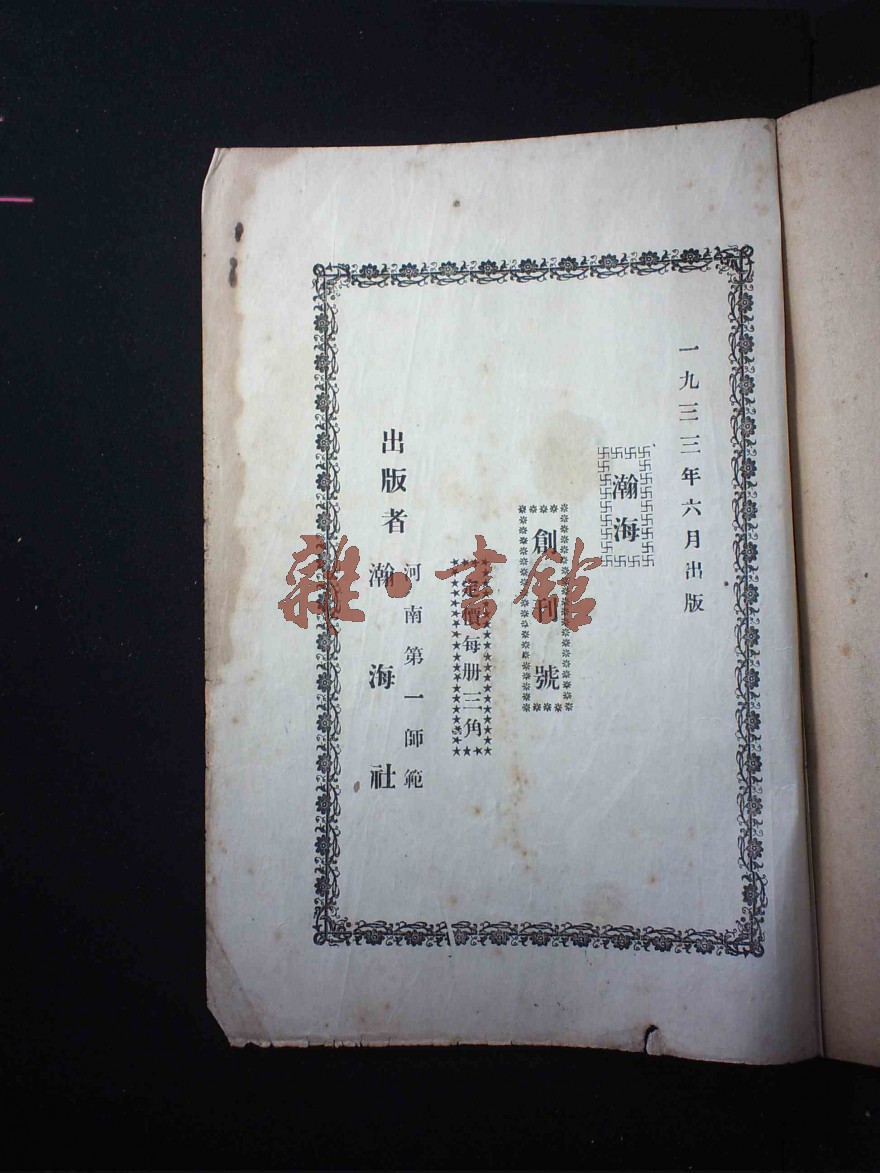 一九三三年六月出版
瀚海
創刊號
定價每册三角
河南第一師範
出版者 瀚海社
雜·書館